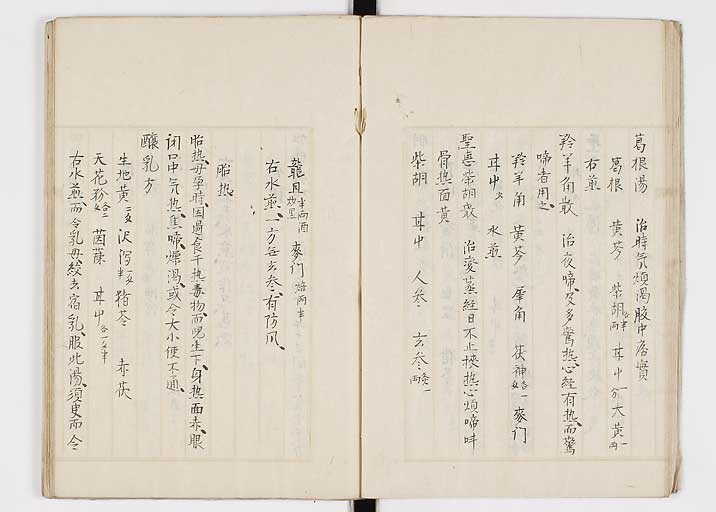 葛根湯　治時気煩渇腹中痞實
葛根　黄芩　柴胡各半両　耳中一分　大黄一両
右煎
羚羊角散　治夜啼、及多驚热、心経有热、而驚
啼者用之、
羚羊角　黄芩　犀角　茯神各一　麥门
耳中　水煎
聖恵柴胡散　治変蒸経日不止挟热、心煩啼呌
骨热面黄
柴胡　耳中　人参　玄参各一両
龍胆半両酒　麥门焙両半
右水煎、一方無玄参、有防风、
胎热
胎热母孕時因過食于热毒物、而児生下、身热面赤、眼
闭口中気热、焦啼、燥渇、或令大小便不通、
醸乳方
生地黄二戈　沢泻　猪苓　赤茯
天花粉　茵蔯　耳中
右水煎、而令乳母絞去宿乳、服此湯、須臾而令